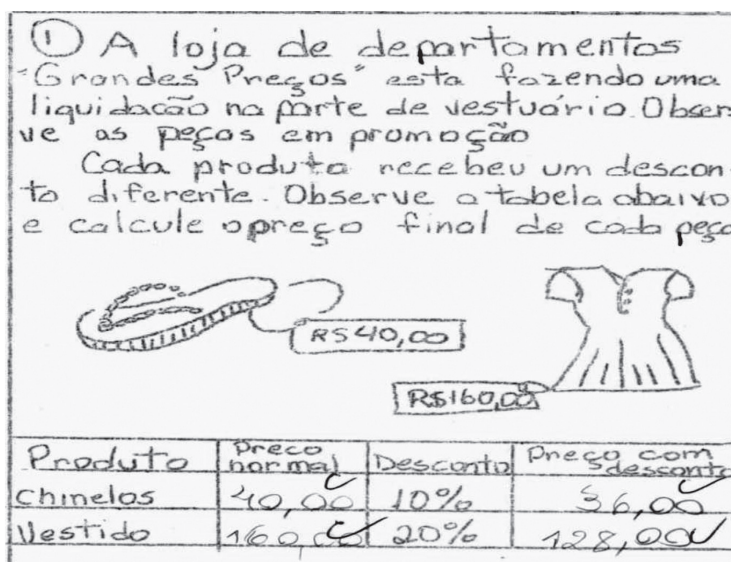 ① A loja de departamentos
"Grandes Preços" esta fazendo uma
liquidacão na parte de vestuário. Obser
ve as peças em promoção
Cada produto recebeu um descon-
to diferente. Observe a tabela abaixo
e calcule o preço final de cada peça
R$ 40,00
R$ 160,00
Produto Preco normal Desconto Preço com desconto
Chinelos 40,00 10% 36,00
Vestido 160,00 20% 128,00